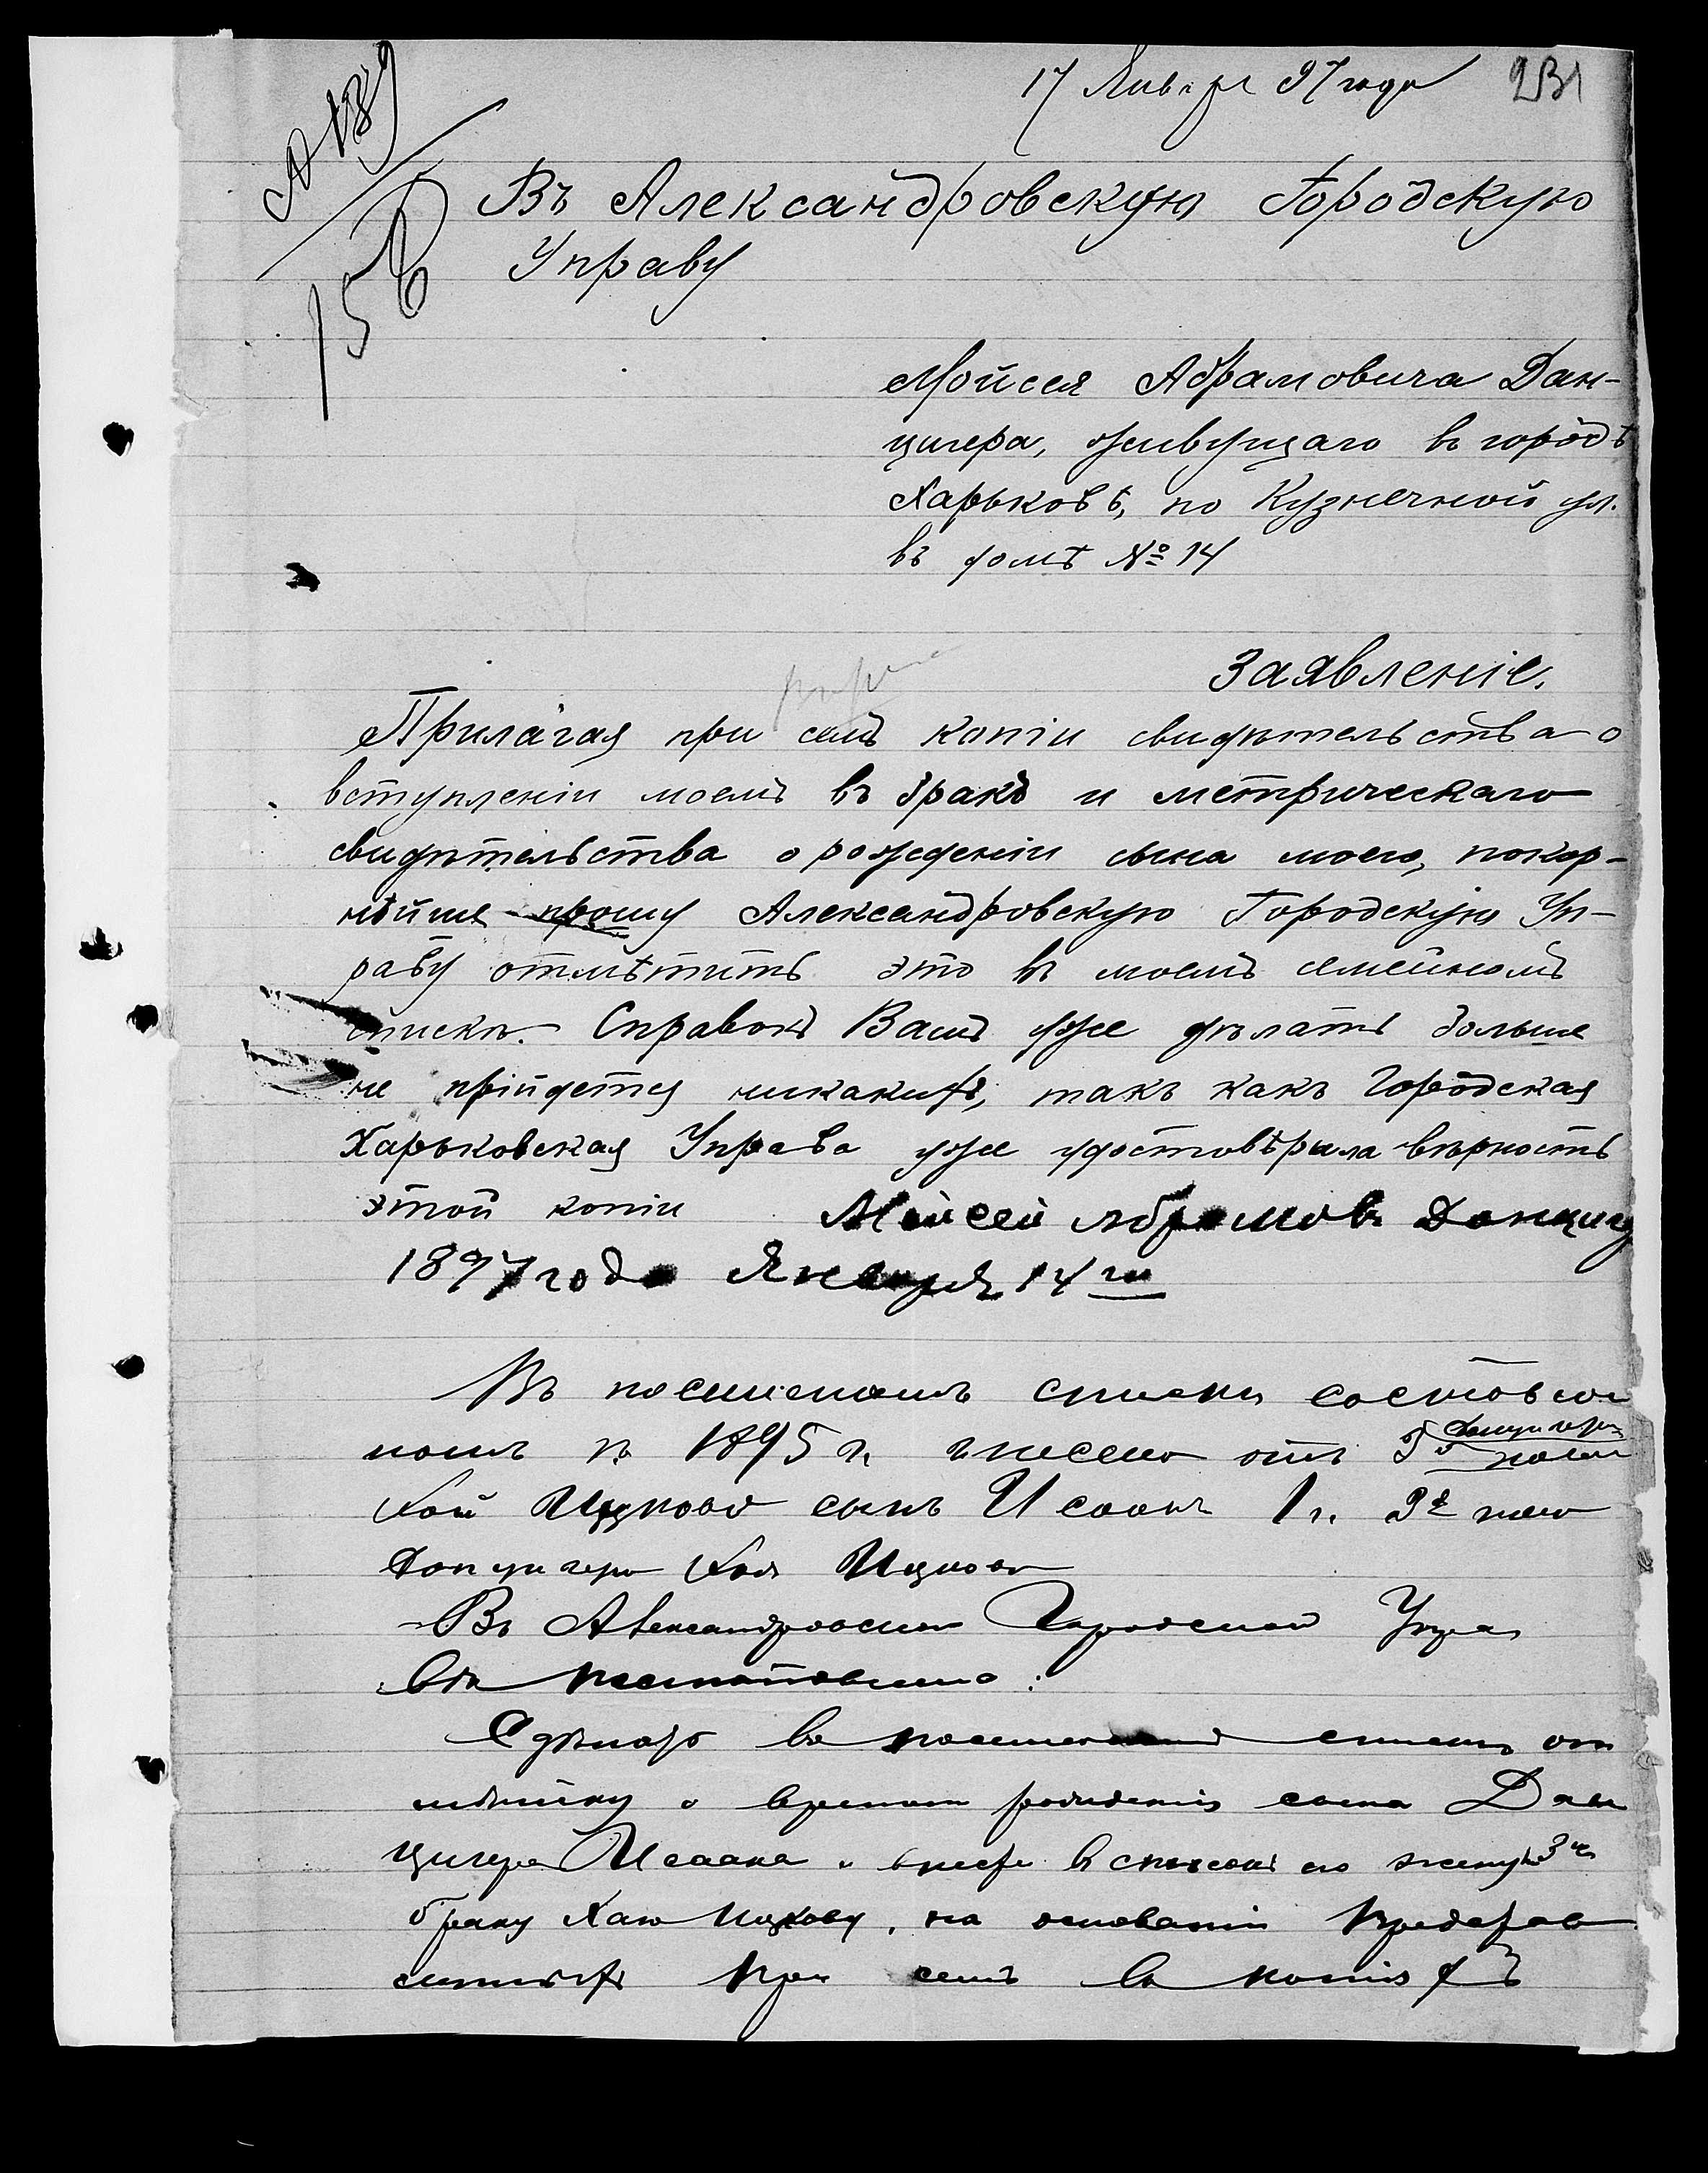 17 Января 97 года 231
№ 189
156
Въ Александровскую Городскую
Управу
Мойсея Абрамовича Дан-
цигера, живущаго въ городѣ
Харьковѣ, по Кузнечной ул.
въ домѣ № 14
Заявленіе.
Прилагая при семъ копіи свидѣтельства о
вступленіи моемъ въ бракъ и метрическаго
свидѣтельства о рожденіи сына моего, покор-
нѣйше прошу Александровскую Городскую Уп-
раву отмѣтить это въ моемъ семейномъ
списки. Справокъ Вамъ уже дѣлать больше
не прійдется никакихъ, такъ какъ Городская
Харьковская Управа уже удостовѣрила вѣрность
этой копіи Мойсей Абрамовъ Данциг
1897 года Января 14 го
Въ посемейномъ списки составлен
номъ въ 1895 г. внесено отъ
Хаи Ицковой сынъ Исаакъ 1 г.
Данцигера Хая Ицкова
Въ Александровской Городской Упра
вѣ постановлено:
Сдѣлать въ посемейномъ списки от
мѣтку о времени рожденія сына Дан
цигера Исаака и внести въ списокъ его жену
браку Хаю Ицкову, на основаніи представ
ленныхъ при семъ въ копіяхъ